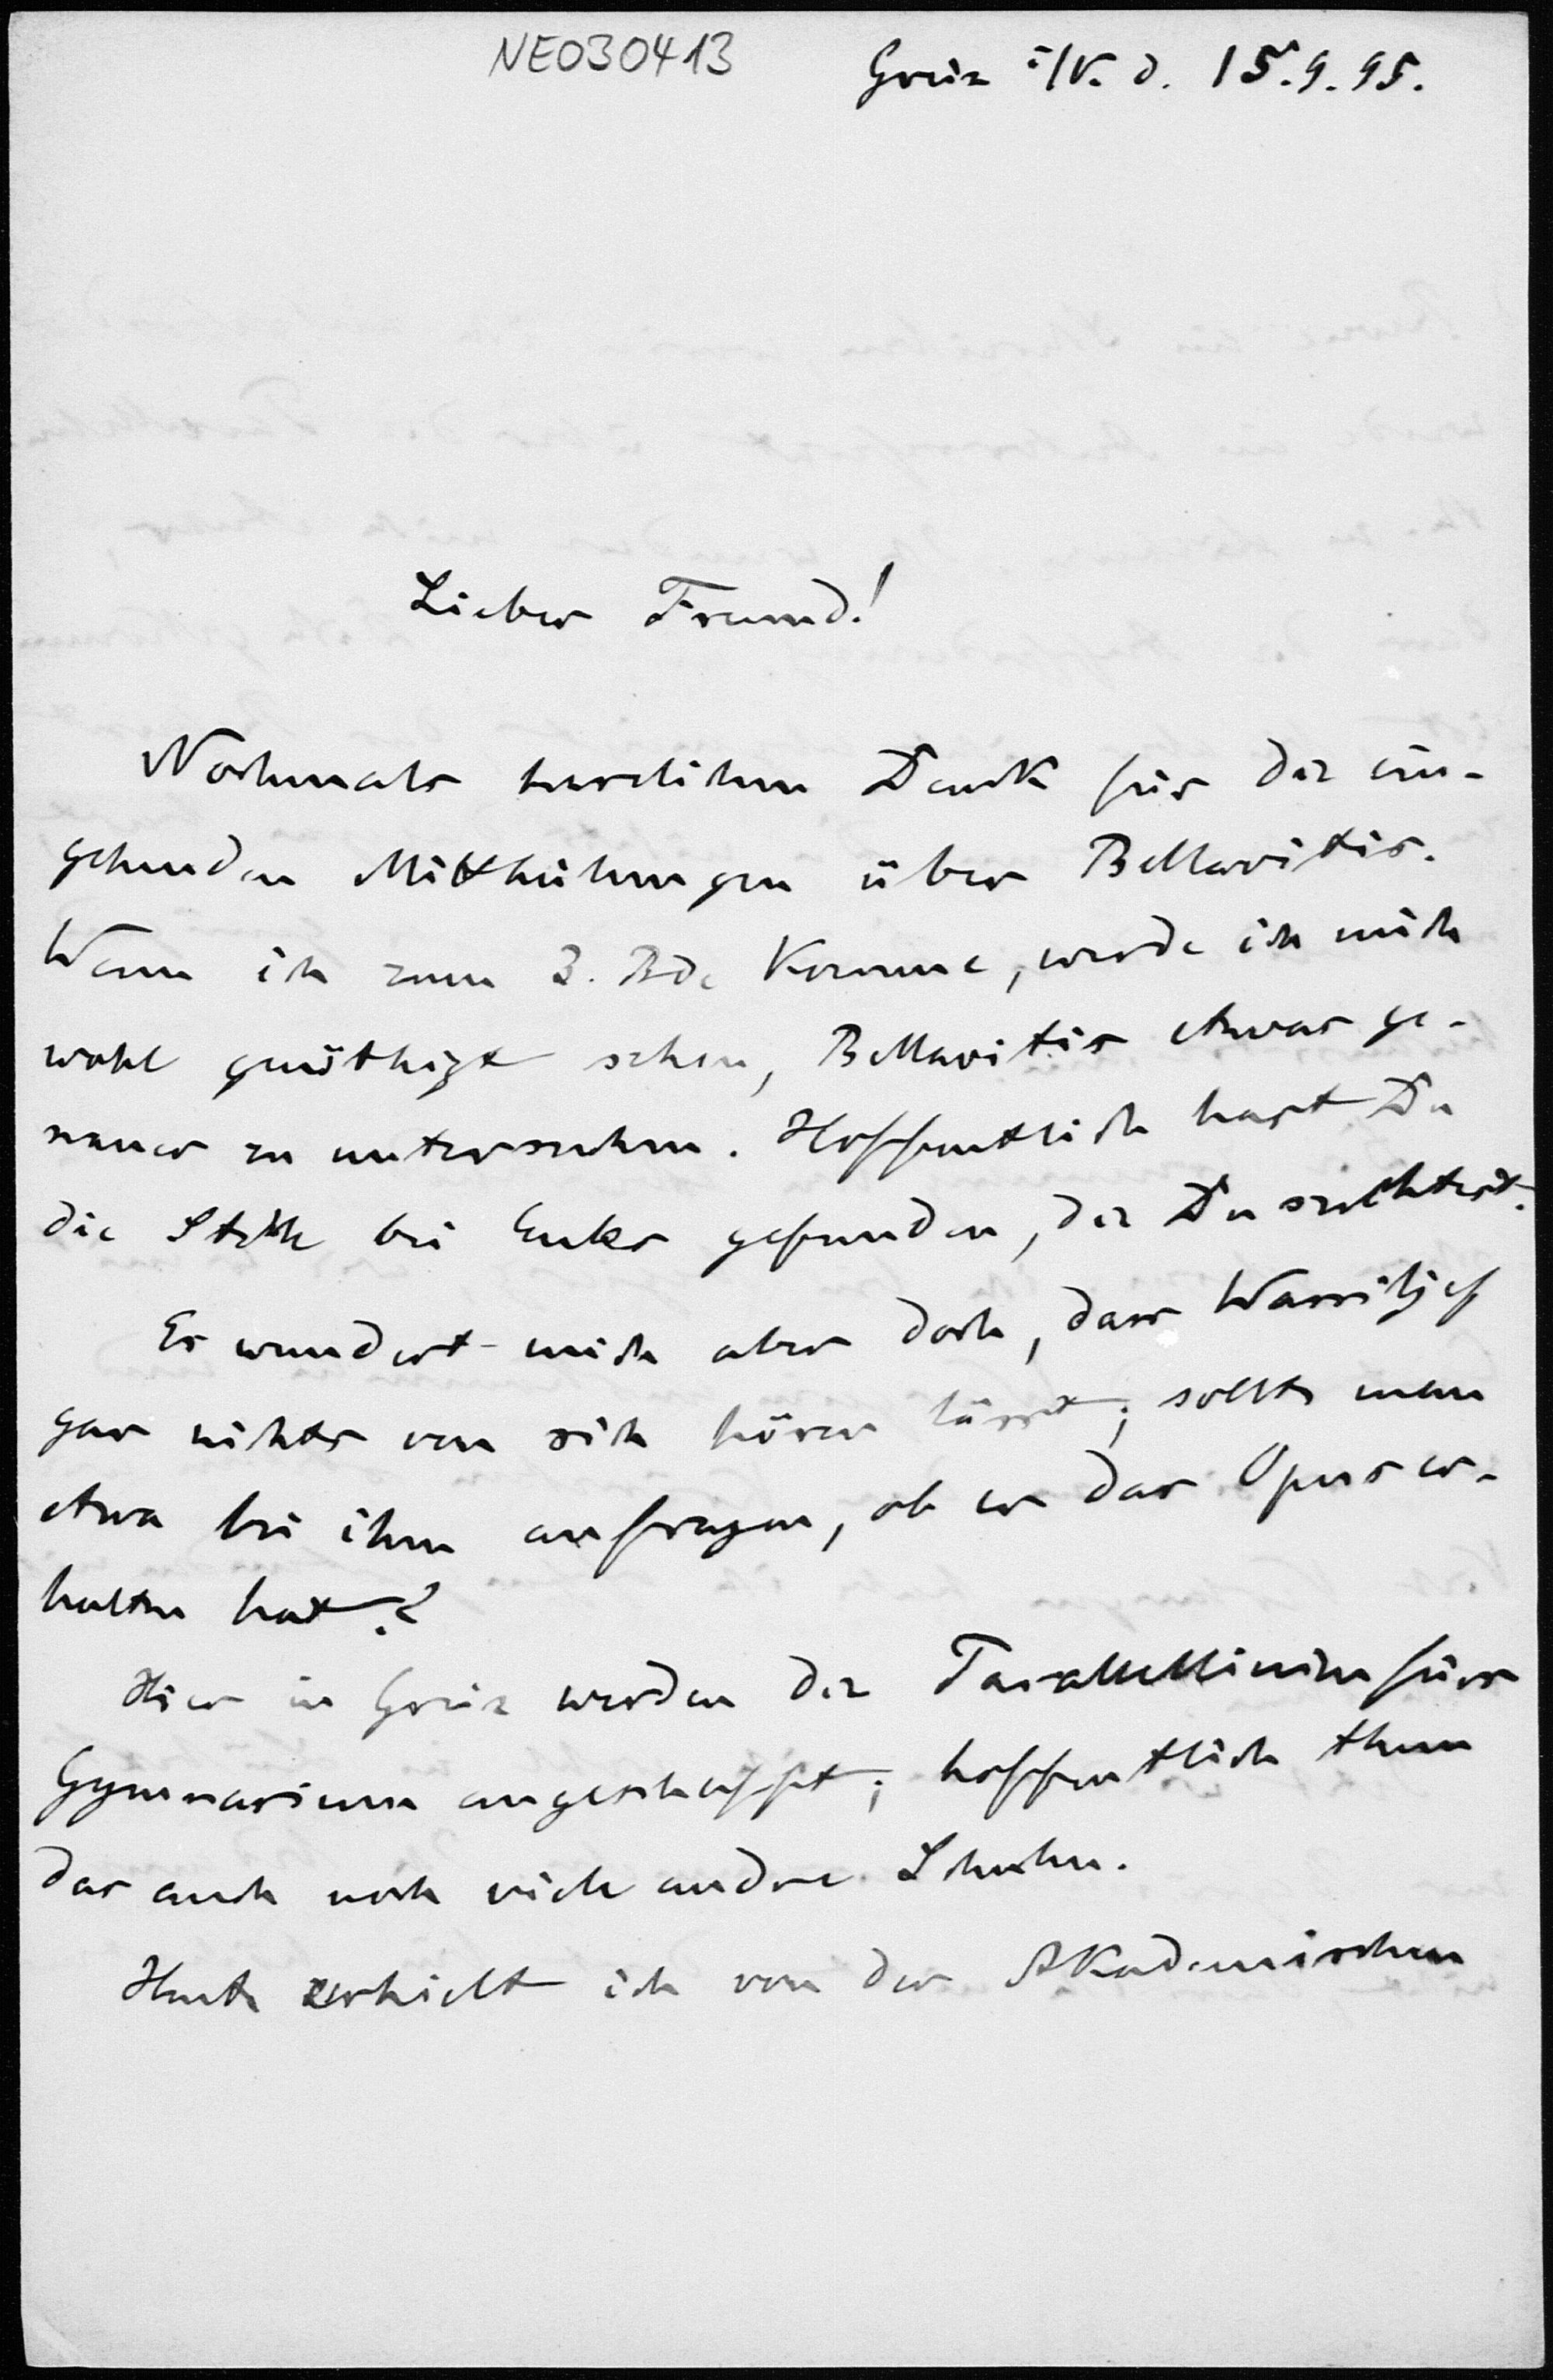 NE030413
Greiz i/V. d. 15.9.95.
Lieber Freund!
Nochmals herzlichen Dank für die ein-
gehenden Mittheilungen über Bellavitis.
Wenn ich zum 2. Bde komme, werde ich mich
wohl genöthigt sehen, Bellavitis etwas ge-
nauer zu untersuchen. Hoffentlich hast Du
die Stelle bei Euler gefunden, die Du suchtest.
Es wundert mich aber doch, dass Wassiljef
gar nichts von sich hören lässt; sollte man
etwa bei ihm anfragen, ob er das Opus er-
halten hat?
Hier in Greiz werden die Parallellinien fürs
Gymnasium angeschafft; hoffentlich thun
das auch noch viele andre Schulen.
Heute erhielt ich von der Akademischen